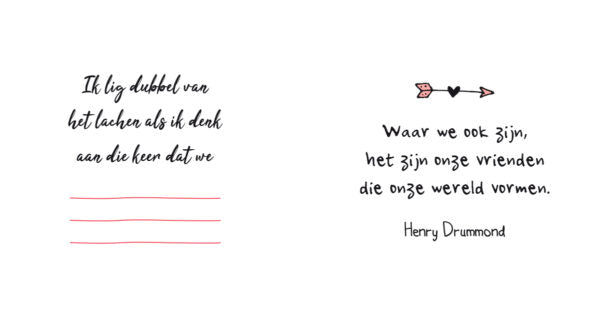 Ik lig dubbel van
het lachen als ik denk
aan die keer dat we
Waar we ook zijn,
het zijn onze vrienden
die onze wereld vormen.
Henry Drummond